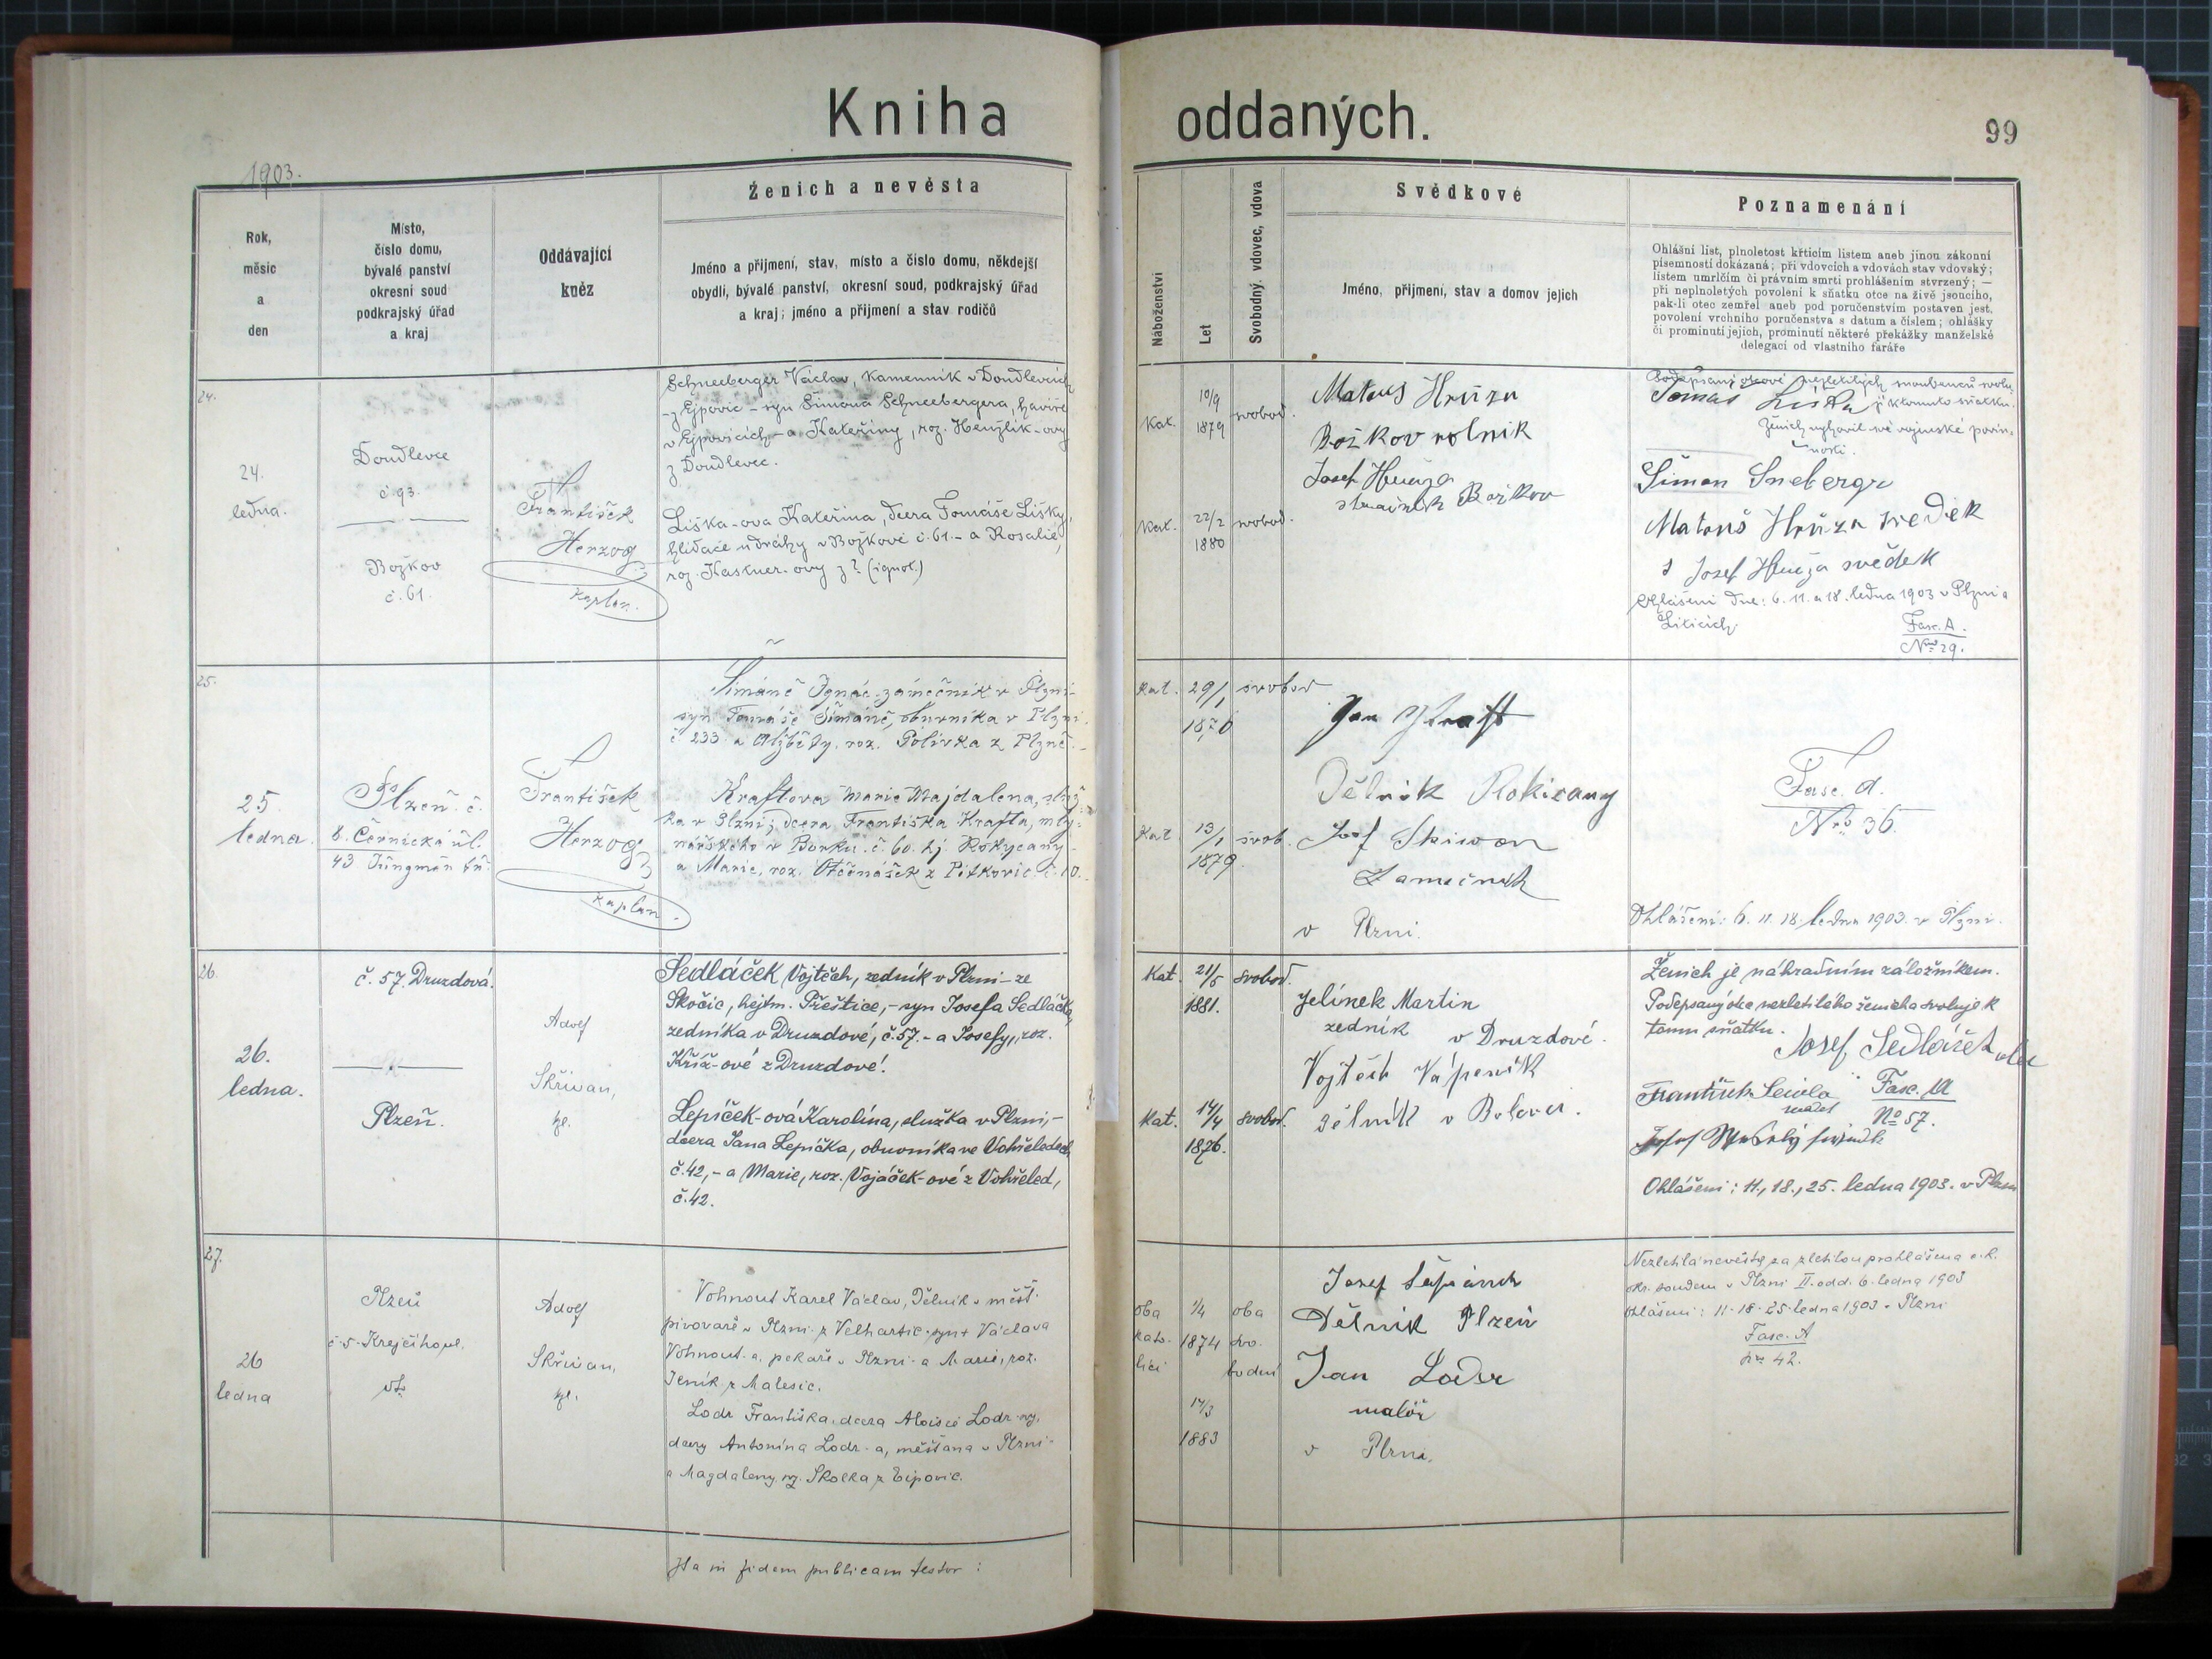 Kniha oddaných.
99
1903.
Rok,
měsíc
a
den
Místo,
číslo domu,
bývalé panství
okresní soud
podkrajský úřad
a kraj
Oddávající
kněz
Ženich a nevěsta
Jméno a přijmení, stav, místo a číslo domu, někdejší
obydlí, bývalé panství, okresní soud, podkrajský úřad
a kraj; jméno a přijmení a stav rodičů
Náboženství
Let
Svobodný, vdovec, vdova
Svědkové
Jméno, přijmení, stav a domov jejich
Poznamenání
Ohlášní list, plnoletost křticím listem aneb jinou zákonní
písemností dokázaná; při vdovcích a vdovách stav vdovský;
listem umrlčím či právním smrti prohlášením stvrzený; —
při neplnoletých povolení k sňatku otce na živě jsoucího,
pak-li otec zemřel aneb pod poručenstvím postaven jest,
povolení vrchního poručenstva s datum a číslem; ohlášky
či prominutí jejich, prominutí některé překážky manželské
delegací od vlastního faráře
24.
24.
ledna.
Doudlevce
č 93.
Božkov
č. 61.
František
Herzog
kaplan.
Schneeberger Václav, kamenník v Doudlevcích
z Ejpovic – syn Šimona Schneebergera, havíře
v Ejpovicích – a Kateřiny, roz. Henzlík-ovy
z Doudlevec.
Liška-ova Kateřina, dcera Tomáše Lišky,
hlídače u dráhy v Božkově č. 61. – a Rosalie,
roz. Kastner-ovy z ? (ignot.)
Kat.
10/9
1879
svobod.
Kat.
22/2
1880
svobod.
Matous Hrůza
Božkov rolnik
Josef Hruza
Božkov
Podepsaní otcové nezletilých snoubenců svolu-
Tomas Liška jí k tomuto sňatku.
Ženich vyhovil své vojenské povin-
nosti.
Šimon Sneberger
Matouš Hrůza svedek
Josef Hruza svědek
Ohlášeni dne: 6. 11. a 18. ledna 1903 v Plzni a
Liticích.
Fasc. A.
Nro 29.
25.
25.
ledna.
Plzeň č.
8. Černická ul.
43 Jungman tř.
František
Herzog
kaplan.
Šimáně Ignác, zámečník v Plzni
syn Tomáše Šimáně, obuvníka v Plzni
č. 233 a Alžběty, roz. Polívka z Plzně.
Kraftova Marie Majdalena, služ-
ka v Plzni; dcera Františka Krafta, mly-
nářského v Borku č. 60. hj. Rokycany
a Marie, roz. Otčenášek z Pětkovic č. 10.
Kat.
29/1
1870
svobod
Kat
13/1
1879.
svob.
Jan Kraft
Dělnik Rokicany
Josef Skiwan
Zamečnik
v Plzni.
Fasc. A.
Nro 36.
Ohlášeni: 6. 11. 18. ledna 1903. v Plzni.
26.
26.
ledna.
č. 57. Druzdová.
Plzeň.
Adolf
Skřivan,
kpl.
Sedláček Vojtěch, zedník v Plzni – ze
Skočic, hejtm. Přeštice, – syn Josefa Sedláčka,
zedníka v Druzdové, č. 57. – a Josefy, roz.
Kříž-ové z Druzdové.
Lepíček-ová Karolína, služka v Plzni, –
dcera Jana Lepíčka, obuvníka ve Vohřeledech
č. 42, – a Marie, roz. Vojáček-ové z Vohřeled,
č. 42.
Kat.
21/5
1881.
svobod.
Kat.
14/4
1876.
svobod.
Jelínek Martin
zedník v Druzdové.
Vojtěch Vápeník
dělník v Bolevci.
Ženich je náhradním záložníkem.
Podepsaný otec nezletilého ženicha svoluje k
tomu sňatku.
Josef Sedláček otec
František
Fasc. A
No 57.
Josef
Ohlášeni: 11., 18., 25. ledna 1903. v Plzni
27.
26
ledna
Plzeň
č. 5. Krejčího ul.
Adolf
Skřivan,
kpl.
Vohnout Karel Václav, dělník v měšť.
pivovaře v Plzni z Velhartic, syn † Václava
Vohnout-a, pekaře v Plzni a Marie, roz.
Jeník z Malesic.
Lodr Františka, dcera Aloisie Lodr-ovy,
dcery Antonína Lodr-a, měšťana v Plzni
a Magdaleny, roz. Skolka z Ejpovic.
oba
kato-
líci
1/4
1874
14/3
1883
oba
svo-
bodní
Josef Štěpánek
Dělnik Plzeň
Jan Loder
malíř
v Plzni.
Nezletilá nevěsta za zletilou prohlášena c. k.
okr. soudem v Plzni II. odd. 6. ledna 1903
Ohlášeni: 11. 18. 25. ledna 1903 v Plzni
Fasc. A
nro 42.
Ita in fidem publicam testor: